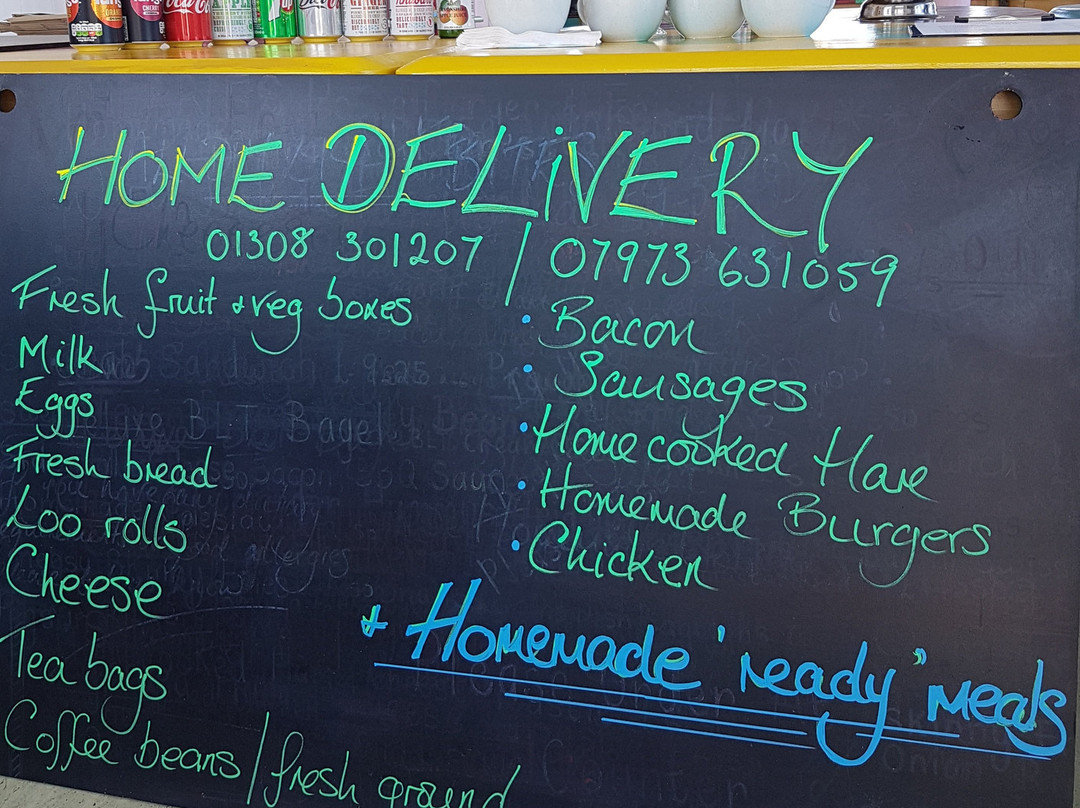 HOME DELiVERY
01308 301207 / 07973 631059
Fresh fruit + veg boxes
Milk
Eggs
Fresh bread
Loo rolls
Cheese
Tea bags
Coffee beans / fresh ground
• Bacon
• Sausages
• Home cooked Ham
• Homemade Burgers
• Chicken
+ Homemade 'ready" meals
Coca-Cola